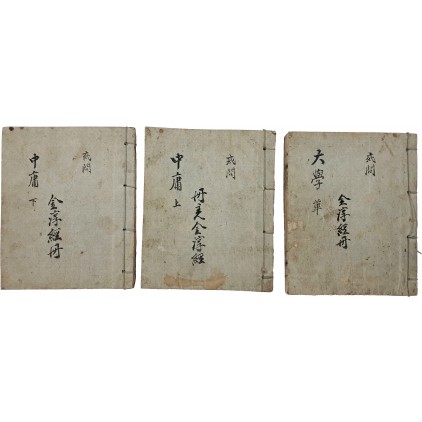 或問
金淳經冊
大學 單
或問
冊主金淳經
中庸 上
或問
金淳經冊
中庸 下